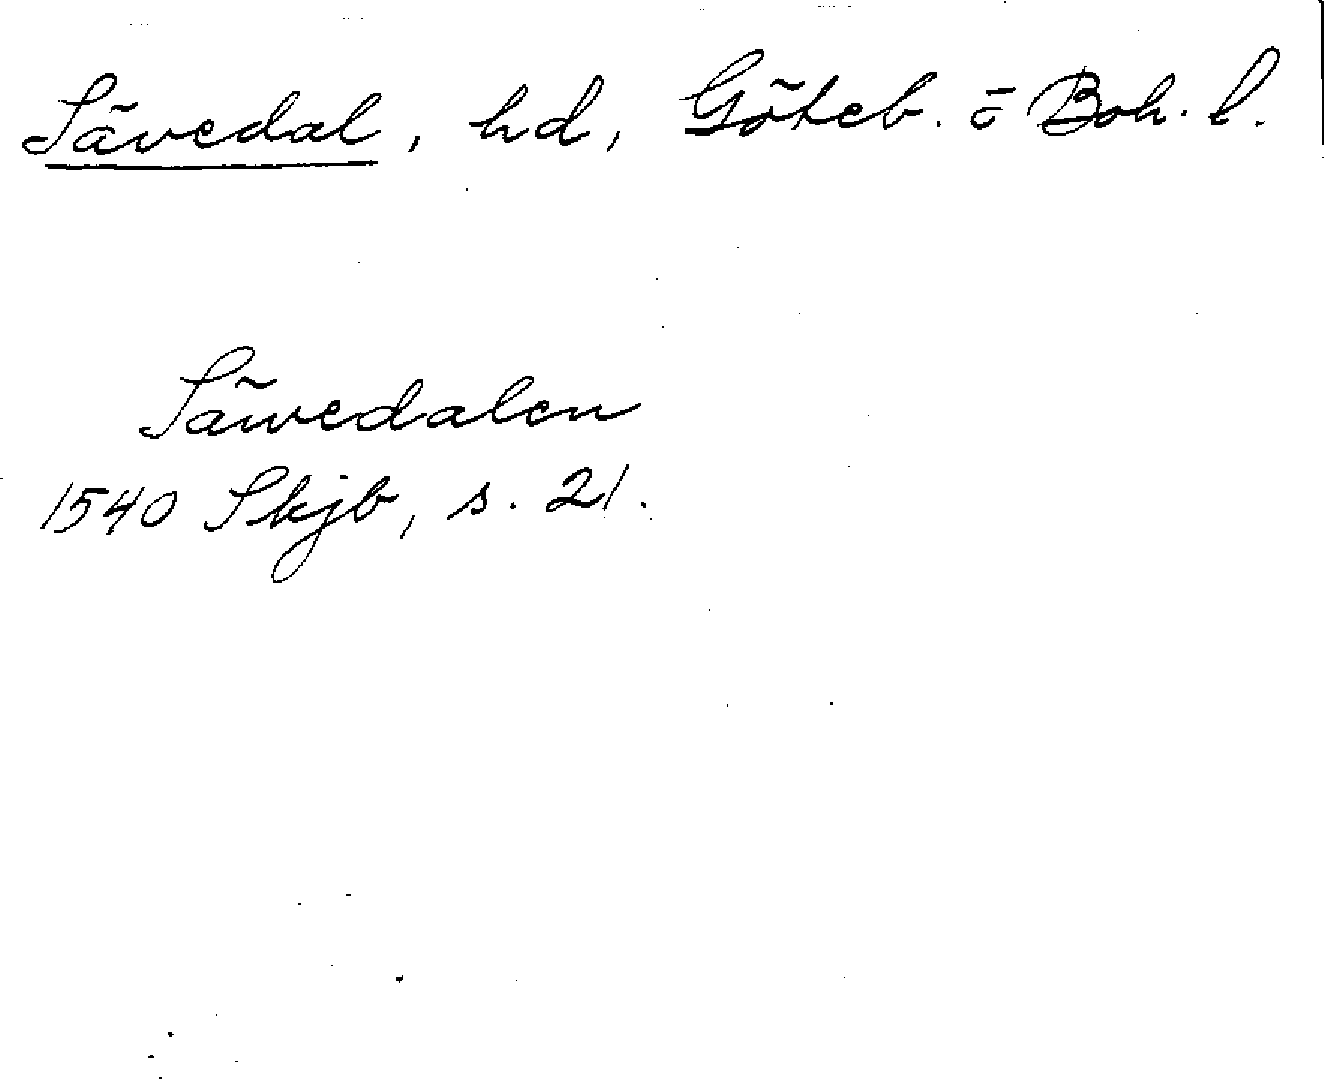 Sävedal, hd, Göteb. o Boh. l.
Säwedalen
1540 Skjb, s. 21.